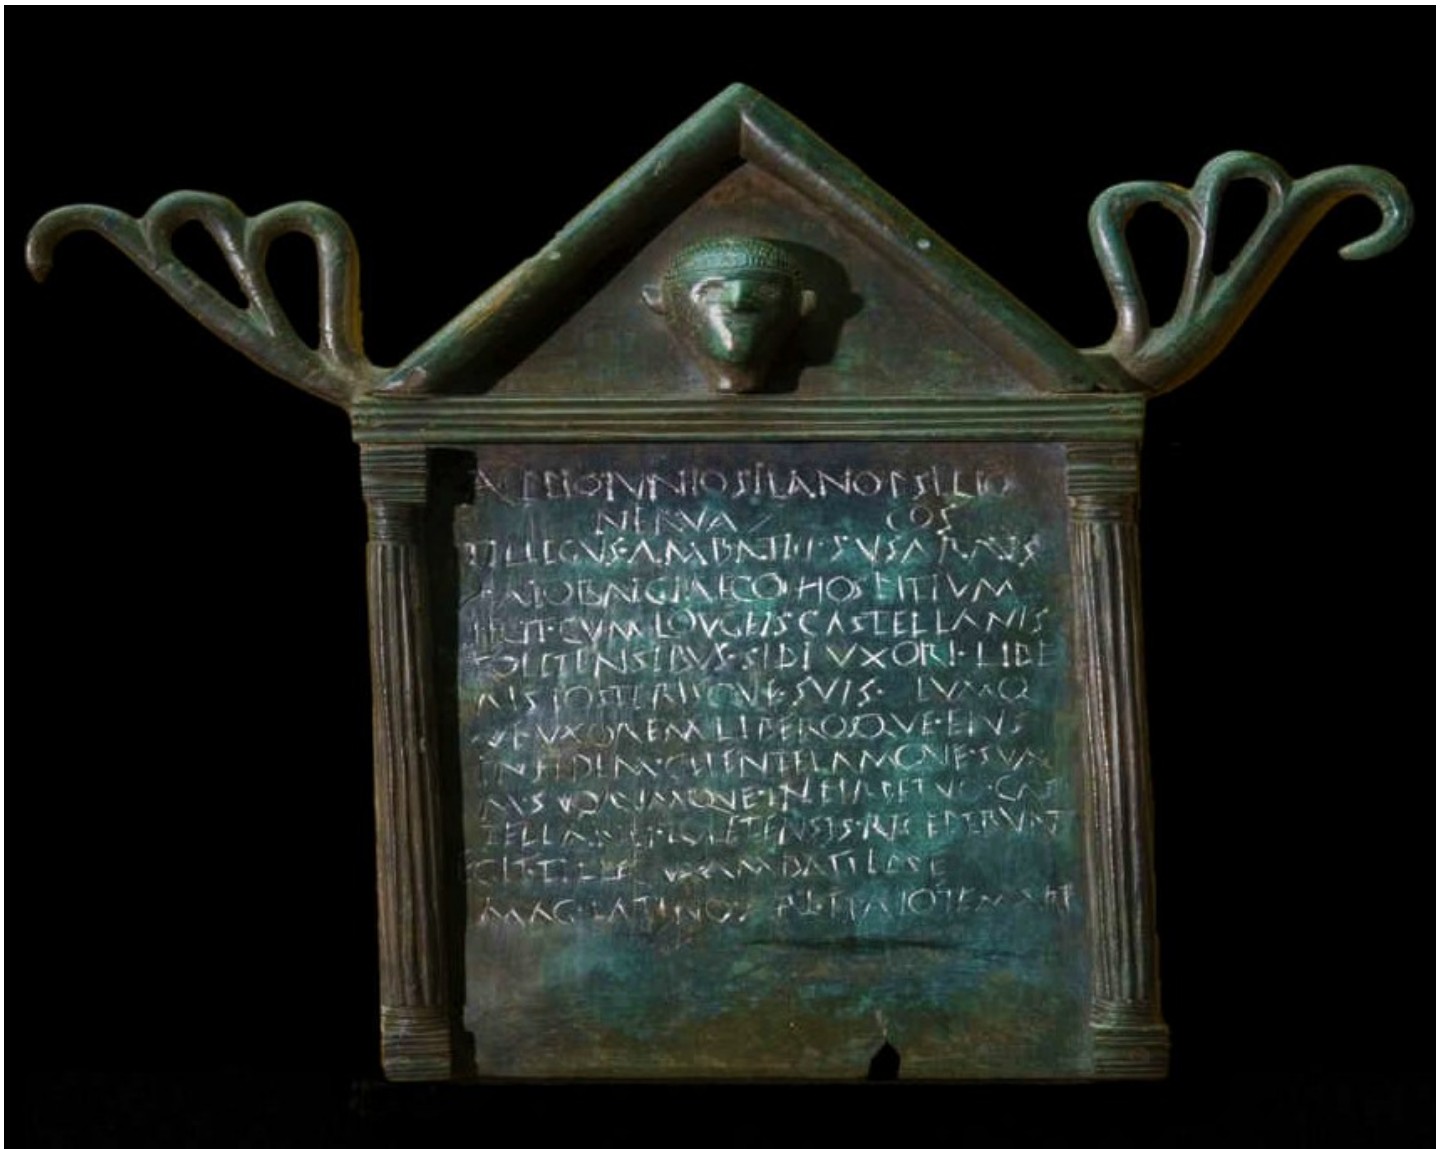 APPIO·IVNIO SILANO P SILIO
NERVA COS
TILLEGVS·AMBATI·F·SVSARRVS
AIOBAIGIAECO HOSPITIVM
FECIT·CVM LOVGEIS CASTELLANIS
TOLETENSIBVS·SIBI VXORI·LIBE
RIS POSTERISQVE·SVIS· EVMQ
VE VXOREM LIBEROSQVE·EIVS
IN FIDEM·CLIENTELAMQVE·SVA
M·SVORVMQVE·IN PERPETVO·CAS
TELLANEI·TOLETENSIS·RECEPERVNT
EGIT·TILLEGVS AMBATI IPSE
MAG·LATINO ARI ET AIO TEMARI